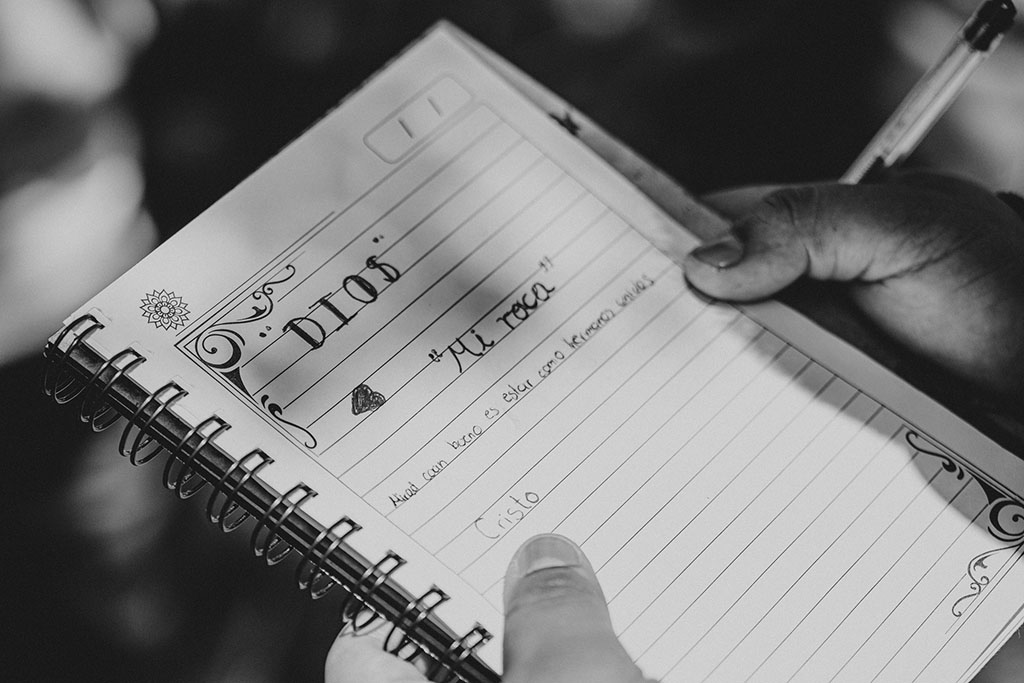 "DIOS"
"Mi roca"
Mirad cuan bueno es estar como hermanos unidos
Cristo